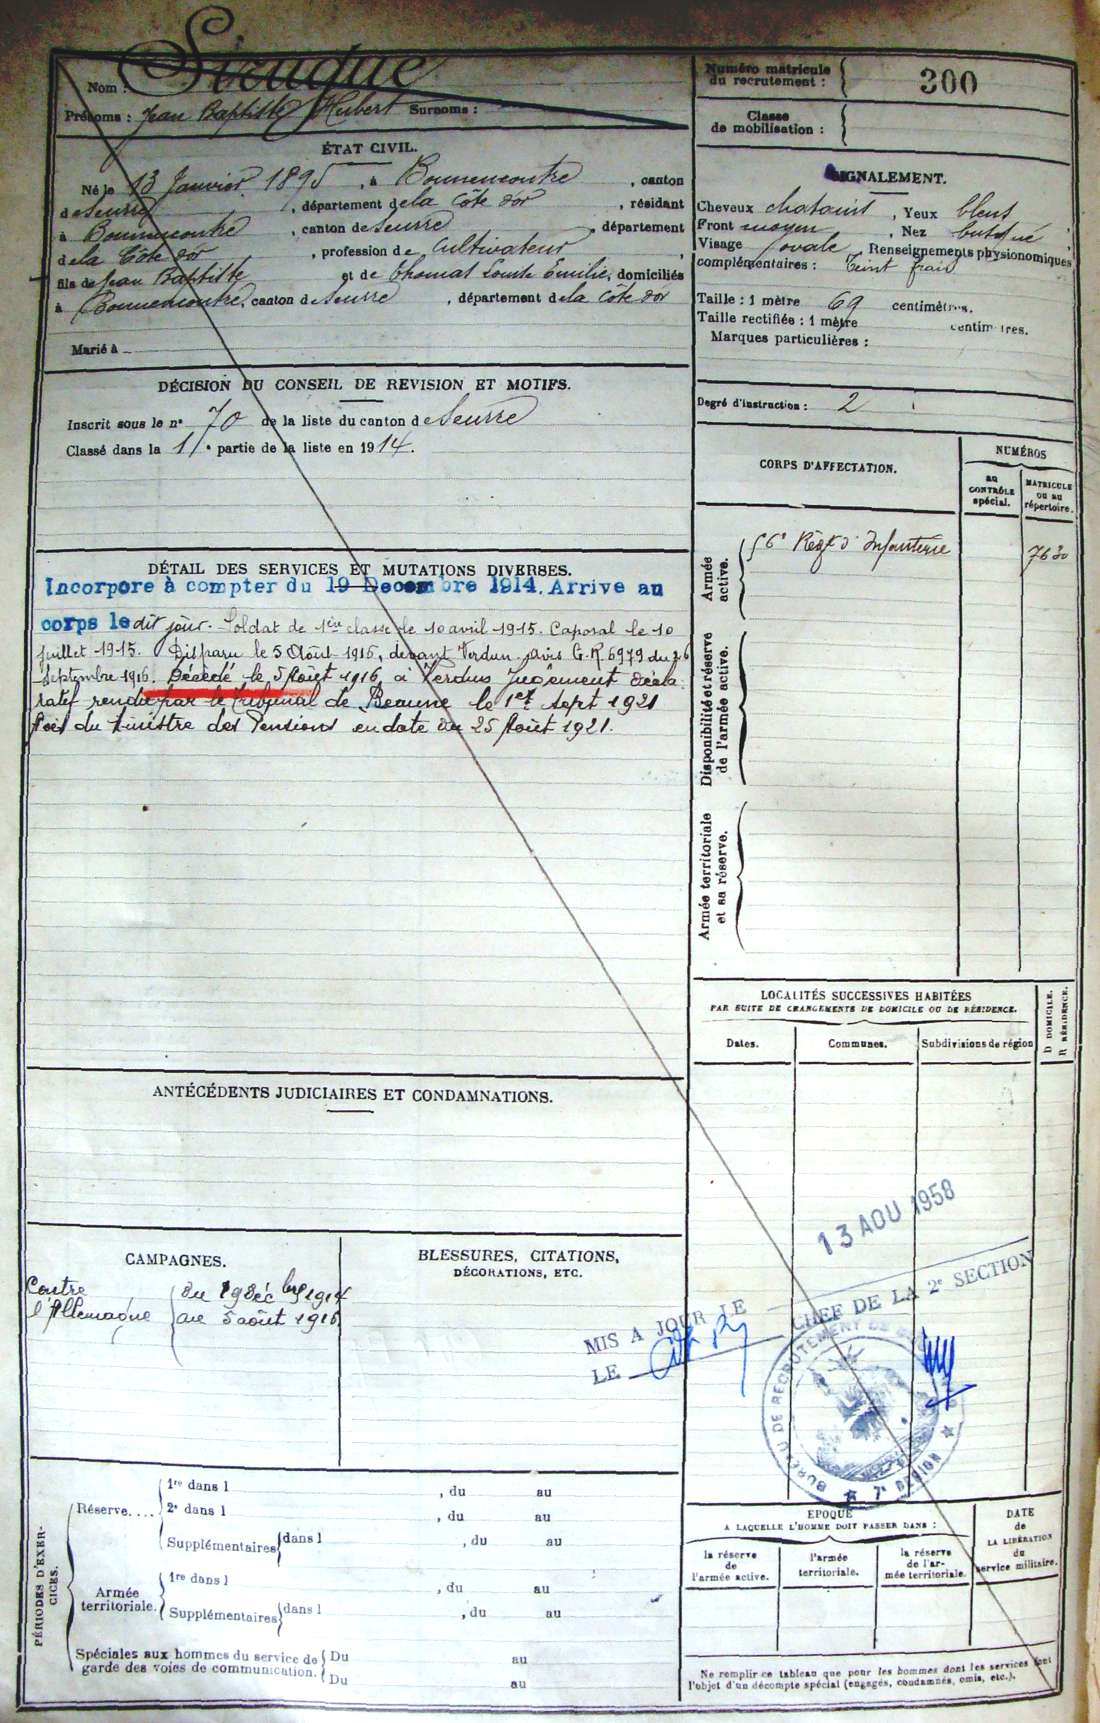 Nom : Sirugue
Prénoms : Jean Baptiste Hubert Surnoms :
ÉTAT CIVIL.
Né le 13 Janvier 1895, à Bonnencontre, canton
de Seurre, département de la Côte d'or, résidant
à Bonnencontre, canton de Seurre, département
de la Côte d'or, profession de cultivateur,
fils de Jean Baptiste et de Thomas Louise Emilie, domiciliés
à Bonnencontre, canton de Seurre, département de la Côte d'or
Marié à
DÉCISION DU CONSEIL DE REVISION ET MOTIFS.
Inscrit sous le n° 70 de la liste du canton de Seurre
Classé dans la 1re partie de la liste en 1914.
DÉTAIL DES SERVICES ET MUTATIONS DIVERSES.
Incorpore à compter du 19 Decembre 1914. Arrive au
corps le dit jour. Soldat de 1ère classe le 10 avril 1915. Caporal le 10
juillet 1915. Disparu le 5 Août 1916, devant Verdun avis G.R. 6979 du 26
Septembre 1916. Décédé le 5 Août 1916 à Verdun Jugement décla
ratif rendu par le Tribunal de Beaune le 1er sept 1921
Avis du Ministre des Pensions en date du 25 Août 1921.
ANTÉCÉDENTS JUDICIAIRES ET CONDAMNATIONS.
CAMPAGNES.
Contre
l'Allemagne
du 19 Déc bre 1914
au 5 août 1916
BLESSURES, CITATIONS,
DÉCORATIONS, ETC.
PÉRIODES D'EXER-
CICES.
Réserve....
1re dans l , du au
2e dans l , du au
Supplémentaires dans l , du au
Armée
territoriale.
1re dans l , du au
Supplémentaires dans l , du au
Spéciales aux hommes du service de
garde des voies de communication.
Du au
Du au
Numéro matricule
du recrutement : 300
Classe
de mobilisation :
SIGNALEMENT.
Cheveux chatains, Yeux bleus
Front moyen, Nez busqué,
Visage ovale, Renseignements physionomiques
complémentaires : Teint frais
Taille : 1 mètre 69 centimètres.
Taille rectifiée : 1 mètre centimètres.
Marques particulières :
Degré d'instruction : 2
CORPS D'AFFECTATION.
NUMÉROS
au
CONTRÔLE
spécial.
MATRICULE
ou au
répertoire.
Armée
active.
56e Régt d'Infanterie 7630
Disponibilité et réserve
de l'armée active.
Armée territoriale
et sa réserve.
LOCALITÉS SUCCESSIVES HABITÉES
PAR SUITE DE CHANGEMENTS DE DOMICILE OU DE RÉSIDENCE.
D DOMICILE.
R RÉSIDENCE.
Dates.
Communes.
Subdivisions de région
13 AOU 1958
MIS A JOUR LE
LE
CHEF DE LA 2e SECTION
BUREAU DE RECRUTEMENT DE
7e REGION
EPOQUE
A LAQUELLE L'HOMME DOIT PASSER DANS :
la réserve
de
l'armée active.
l'armée
territoriale.
la réserve
de l'ar-
mée territoriale.
DATE
de
LA LIBÉRATION
du
service militaire.
Ne remplir ce tableau que pour les hommes dont les services font
l'objet d'un décompte spécial (engagés, condamnés, omis, etc.).